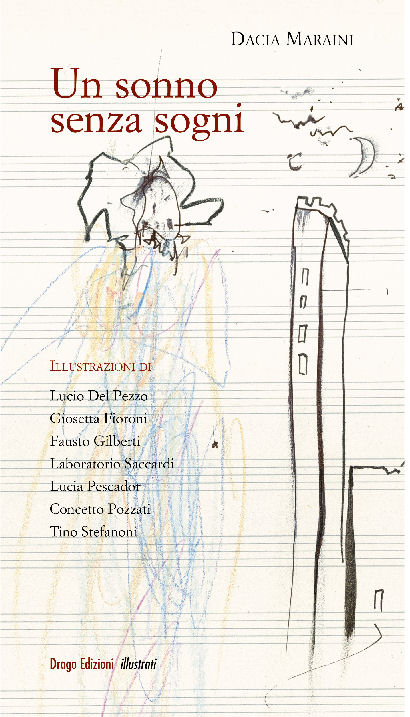 Dacia Maraini
Un sonno
senza sogni
Illustrazioni di
Lucio Del Pezzo
Giosetta Fioroni
Fausto Gilberti
Laboratorio Saccardi
Lucia Pescador
Concetto Pozzati
Tino Stefanoni
Drago Edizioni / illustrati